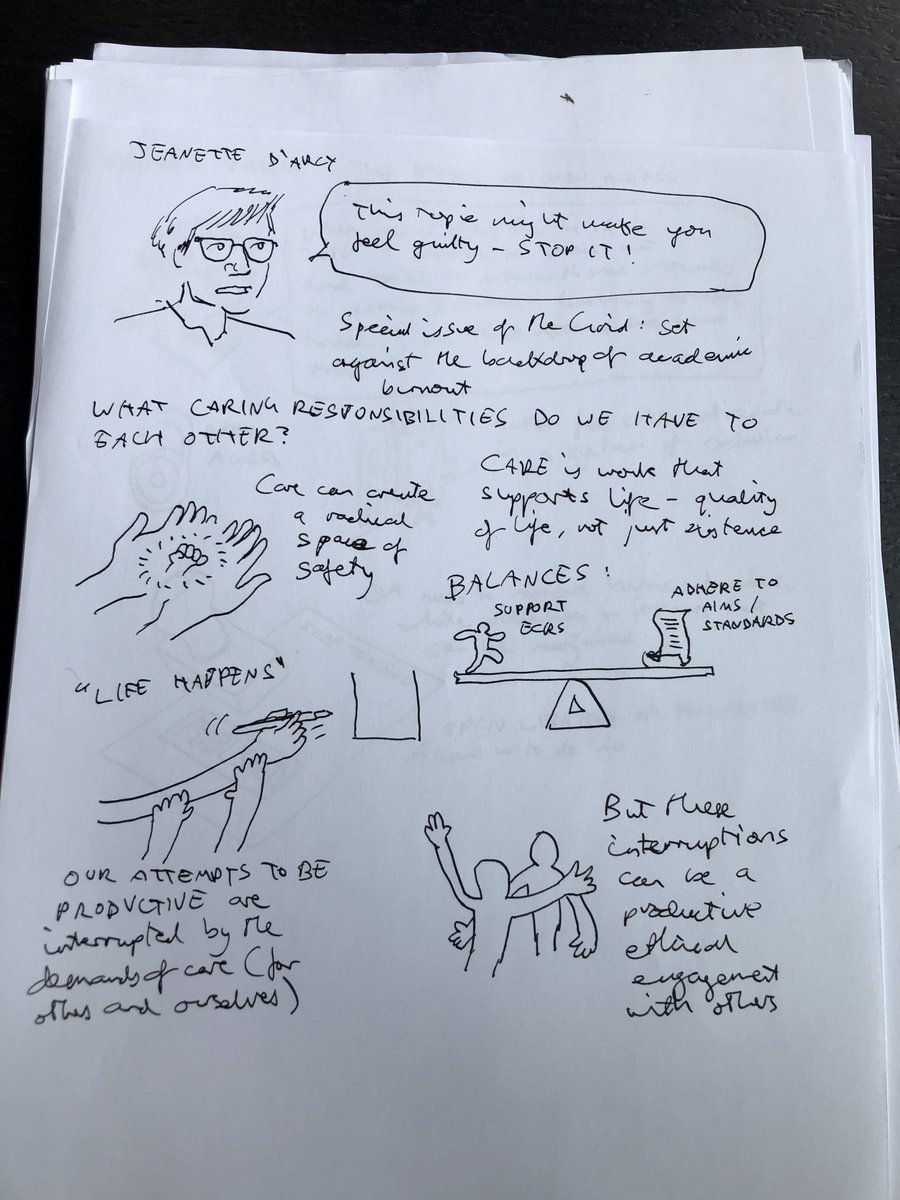 JEANETTE D'ARCY
This topic might make you
feel guilty – STOP IT!
Special issue of the Croid: set
against the backdrop of academic
burnout
WHAT CARING RESPONSIBILITIES DO WE HAVE TO
EACH OTHER?
Care can create
a radical
space of
safety
CARE is work that
supports life – quality
of life, not just existence
BALANCES:
SUPPORT
ECRS
ADHERE TO
AIMS/
STANDARDS
"LIFE HAPPENS"
OUR ATTEMPTS TO BE
PRODUCTIVE are
interrupted by the
demands of care (for
others and ourselves)
But these
interruptions
can be a
productive
ethical
engagement
with others